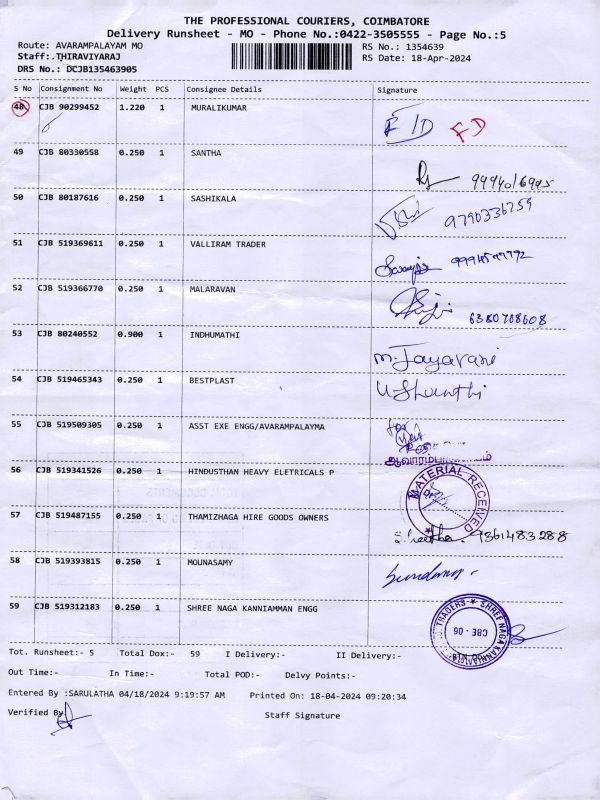 THE PROFESSIONAL COURIERS, COIMBATORE
Delivery Runsheet - MO - Phone No.:0422-3505555 - Page No.:5
Route: AVARAMPALAYAM MO RS No.: 1354639
Staff:.THIRAVIYARAJ RS Date: 18-Apr-2024
DRS No.: DCJB135463905
S No Consignment No Weight PCS Consignee Details Signature
48 CJB 90299452 1.220 1 MURALIKUMAR F/D FD
49 CJB 80330558 0.250 1 SANTHA
50 CJB 80187616 0.250 1 SASHIKALA 9790336259
51 CJB 519369611 0.250 1 VALLIRAM TRADER
52 CJB 519366770 0.250 1 MALARAVAN 6380708608
53 CJB 80240552 0.900 1 INDHUMATHI M.Jayarani
54 CJB 519465343 0.250 1 BESTPLAST U Shanthi
55 CJB 519509305 0.250 1 ASST EXE ENGG/AVARAMPALAYMA for
56 CJB 519341526 0.250 1 HINDUSTHAN HEAVY ELETRICALS P MATERIAL RECEIVED
57 CJB 519487155 0.250 1 THAMIZHAGA HIRE GOODS OWNERS 9361483288
58 CJB 519393815 0.250 1 MOUNASAMY
59 CJB 519312183 0.250 1 SHREE NAGA KANNIAMMAN ENGG TRADERS ★ SHREE NAGA CBE - 06
Tot. Runsheet:- 5 Total Dox:- 59 I Delivery:- II Delivery:-
Out Time:- In Time:- Total POD:- Delvy Points:-
Entered By :SARULATHA 04/18/2024 9:19:57 AM Printed On: 18-04-2024 09:20:34
Verified By Staff Signature